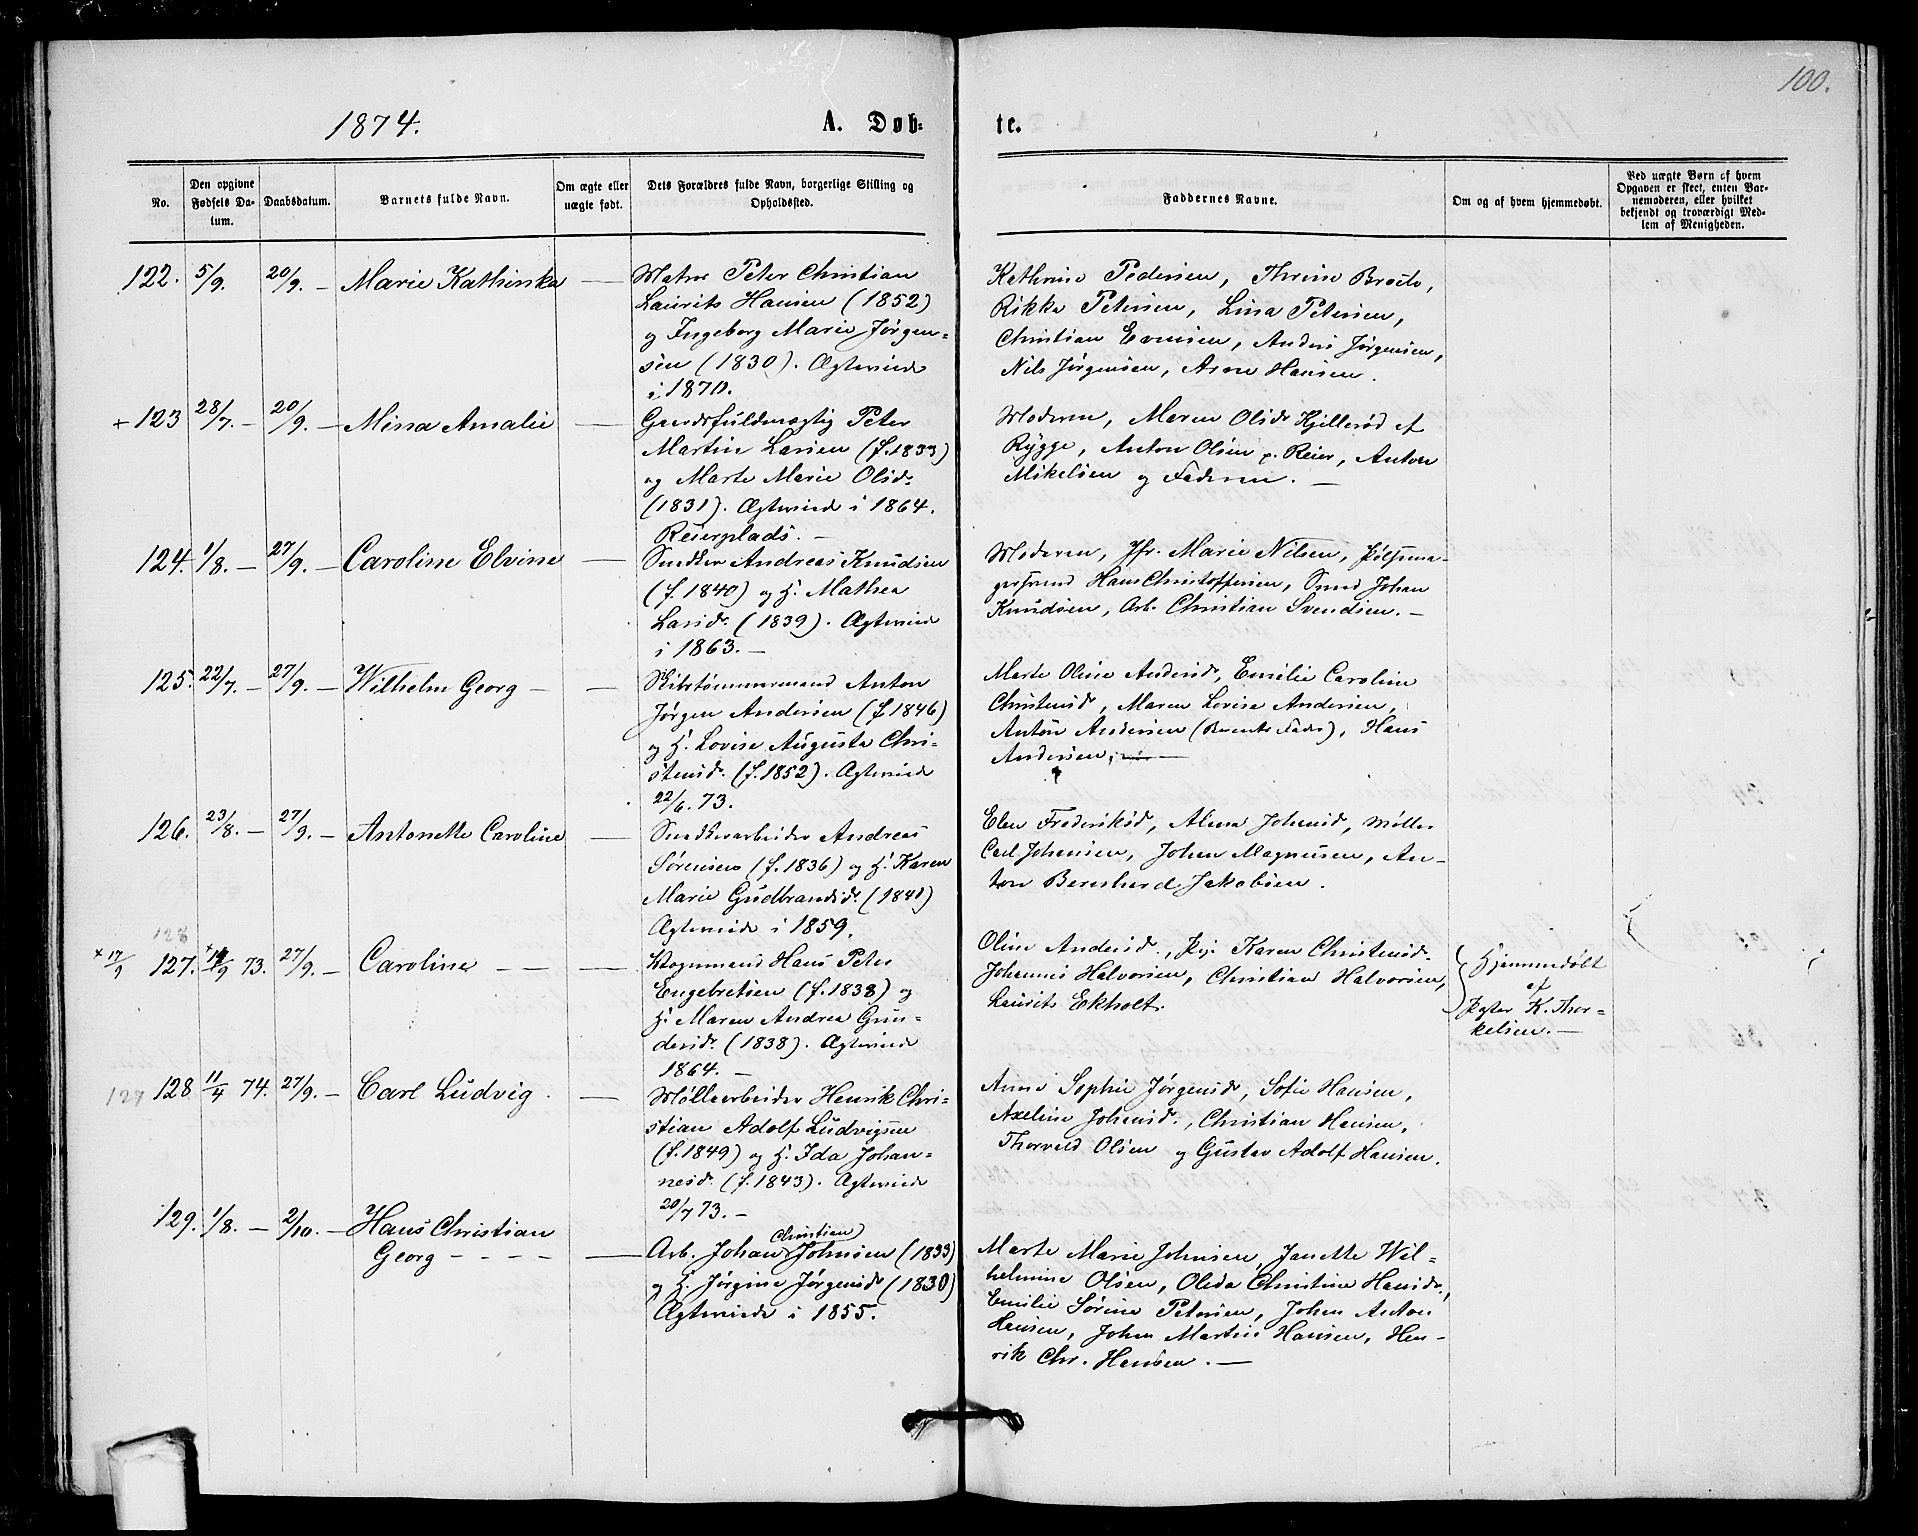 100.
1874.
A. Døb-
te.
No.
Den opgivne Fødsels Da-tum.
Daabsdatum.
Barnets fulde Navn.
Om ægte eller uægte født.
Dets Forældres fulde Navn, borgerlige Stilling og Opholdssted.
Faddernes Navne.
Om og af hvem hjemmedøbt.
Ved uægte Børn af hvem Opgaven er skeet, enten Bar-nemoderen, eller hvilket bekjendt og troværdigt Med-lem af Menigheden.
122. 5/9. 20/9. — Marie Kathinka —
Matros Peter Christian
Laurits Hansen (1852)
og Ingeborg Marie Jørgen-
sen (1830). Ægteviede
i 1870.
Kathrine Pedersen, Thrine Broeto,
Rikka Petersen, Lina Petersen,
Christian Evensen, Anders Jørgensen,
Nils Jørgensen, Arne Hansen.
+ 123 28/7. — 20/9. — Mina Amalie —
Gaardsfuldmægtig Peter
Martin Larsen (f. 1833)
og Marte Marie Olsd.
(1831). Ægteviede i 1864.
Reierplads. —
Moderen, Maren Olsd. Hjellerød af
Rygge, Anton Olsen p. Reier, Anton
Mikelsen og Faderen. —
124. 1/8. — 27/9. — Caroline Elvine —
Snedker Andreas Knudsen
(f. 1840) og H. Mathea
Larsd. (1839). Ægteviede
i 1863. —
Moderen, Jfr. Marie Nilsen, Pølsema-
gersvend Hans Christoffersen, Smed Johan
Knudsen, Arb. Christian Svendsen. —
125. 22/7. — 27/9. — Wilhelm Georg — —
Skibstømmermand Anton
Jørgen Andersen (f. 1846)
og H. Lovise Augusta Chri-
stensd. (f. 1852). Ægteviede
22/6. 73.
Marte Oline Andersd., Emilie Caroline
Christensd., Maren Lovise Andersen,
Anton Andersen (Barnets Fader), Hans
Andersen, —
126. 23/8. — 27/9. — Antonette Caroline —
Snedkerarbeider Andreas
Sørensen (f. 1836) og H. Karen
Marie Gudbrandsd. (1840)
Ægteviede i 1859.
Elen Frederiksd., Alma Johansd., Møller
Carl Johansen, Johan Magnusen, An-
ton Bernhard Jakobsen.
128
+ 17/9 127. + 14/9 73. 27/9. — Caroline — — —
Vognmand Hans Peter
Engebretsen (f. 1838) og
H. Maren Andrea Gun-
dersd. (1838). Ægteviede
1864. —
Oline Andersd., Pig. Karen Christensd.
Johannes Halvorsen, Christian Halvorsen,
Laurits Ekholt.
Hjemmedøbt
af
Pastor K. Thor-
kelsen. —
127 128 11/4 74. 27/9. — Carl Ludvig. —
Møllearbeider Henrik Chri-
stian Adolf Ludvigsen
(f. 1849) og H. Ida Johan-
nesd. (f. 1843). Ægteviede
20/7 73. —
Anne Sophie Jørgensd., Sofie Hansen,
Axeline Johansd., Christian Hansen,
Thorvald Olsen og Gustav Adolf Hansen.
129. 1/8. — 2/10. — Hans Christian
Georg - - - - —
Christian
Arb. Johan Johnsen (1833)
og H. Jørgine Jørgensd. (1830)
Ægteviede i 1855.
Marte Marie Johnsen, Janette Wil-
helmine Olsen, Olida Christine Hansd.,
Emilie Sørine Petersen, Johan Anton
Hansen, Johan Martin Hansen, Hen-
rik Chr. Hansen. —